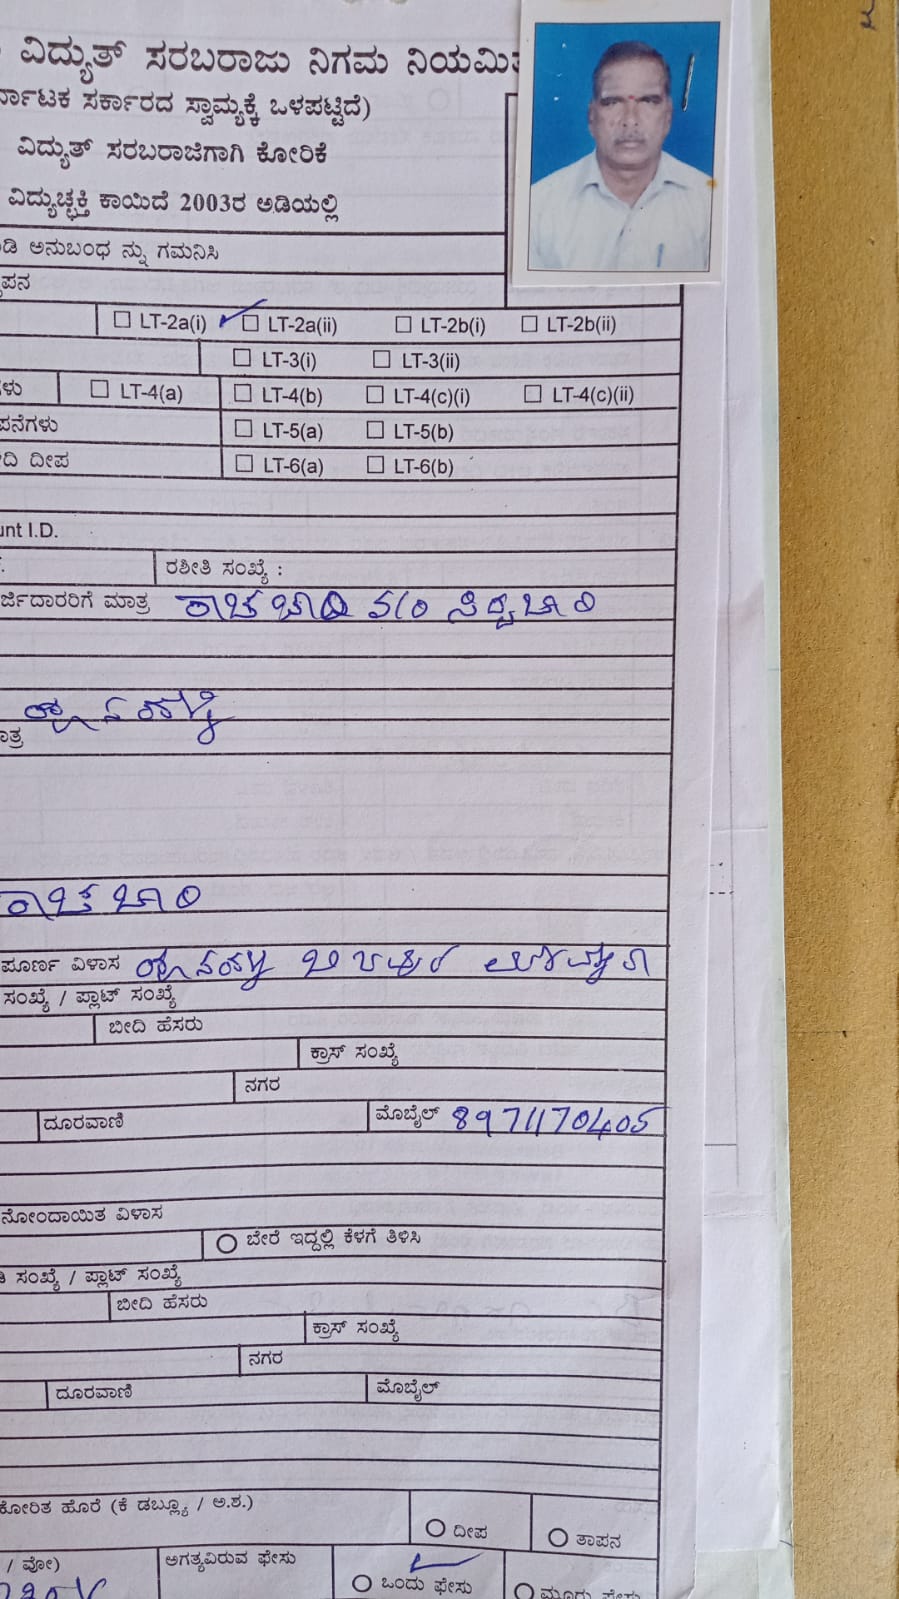 ವಿದ್ಯುತ್ ಸರಬರಾಜು ನಿಗಮ ನಿಯಮಿತ
ರ್ನಾಟಕ ಸರ್ಕಾರದ ಸ್ವಾಮ್ಯಕ್ಕೆ ಒಳಪಟ್ಟಿದೆ)
ವಿದ್ಯುತ್ ಸರಬರಾಜಿಗಾಗಿ ಕೋರಿಕೆ
ವಿದ್ಯುಚ್ಛಕ್ತಿ ಕಾಯಿದೆ 2003ರ ಅಡಿಯಲ್ಲಿ
ಡಿ ಅನುಬಂಧ ನ್ನು ಗಮನಿಸಿ
ಪನ
LT-2a(i) LT-2a(ii) LT-2b(i) LT-2b(ii)
LT-3(i) LT-3(ii)
ಗಳು LT-4(a) LT-4(b) LT-4(c)(i) LT-4(c)(ii)
ಪನೆಗಳು LT-5(a) LT-5(b)
ದಿ ದೀಪ LT-6(a) LT-6(b)
unt I.D.
ರಶೀತಿ ಸಂಖ್ಯೆ :
ರ್ಜಿದಾರರಿಗೆ ಮಾತ್ರ
ಾತ್ರ
ಪೂರ್ಣ ವಿಳಾಸ
ಸಂಖ್ಯೆ / ಪ್ಲಾಟ್ ಸಂಖ್ಯೆ
ಬೀದಿ ಹೆಸರು
ಕ್ರಾಸ್ ಸಂಖ್ಯೆ
ನಗರ
ದೂರವಾಣಿ ಮೊಬೈಲ್ 8971170405
ನೋಂದಾಯಿತ ವಿಳಾಸ
ಬೇರೆ ಇದ್ದಲ್ಲಿ ಕೆಳಗೆ ತಿಳಿಸಿ
ಸಂಖ್ಯೆ / ಪ್ಲಾಟ್ ಸಂಖ್ಯೆ
ಬೀದಿ ಹೆಸರು
ಕ್ರಾಸ್ ಸಂಖ್ಯೆ
ನಗರ
ದೂರವಾಣಿ ಮೊಬೈಲ್
ಕೋರಿತ ಹೊರೆ (ಕೆ ಡಬ್ಲ್ಯೂ / ಅ.ಶ.)
ದೀಪ ತಾಪನ
/ ವೋ) ಅಗತ್ಯವಿರುವ ಫೇಸು
ಒಂದು ಫೇಸು ಮೂರು ಫೇಸು